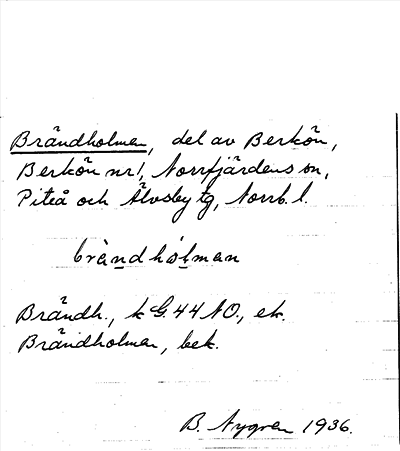 Brändholmen, del av Berkön,
Berkön nr 1, Norrfjärdens sn,
Piteå och Älvsby tg, Norrb. l.
brä̀ndhólman
Brändh., k G. 44 NO., ek.
Brändholmen, bek.
B. Nygren 1936.